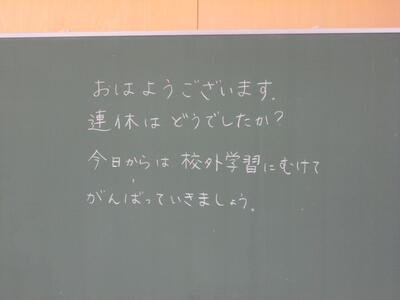 おはようございます.
連休はどうでしたか?
今日からは校外学習にむけて
がんばっていきましょう。